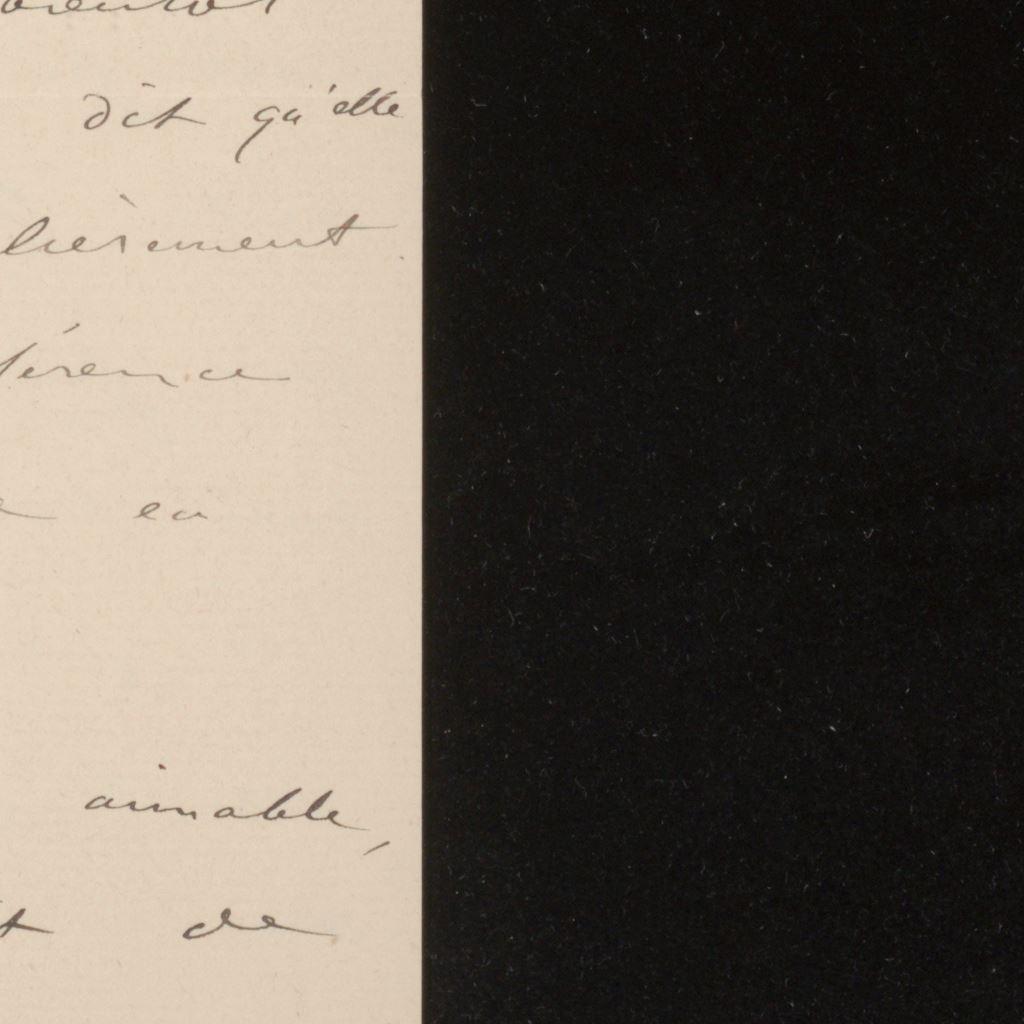 dit qu'elle
lièrement
férence
en
aimable,
de